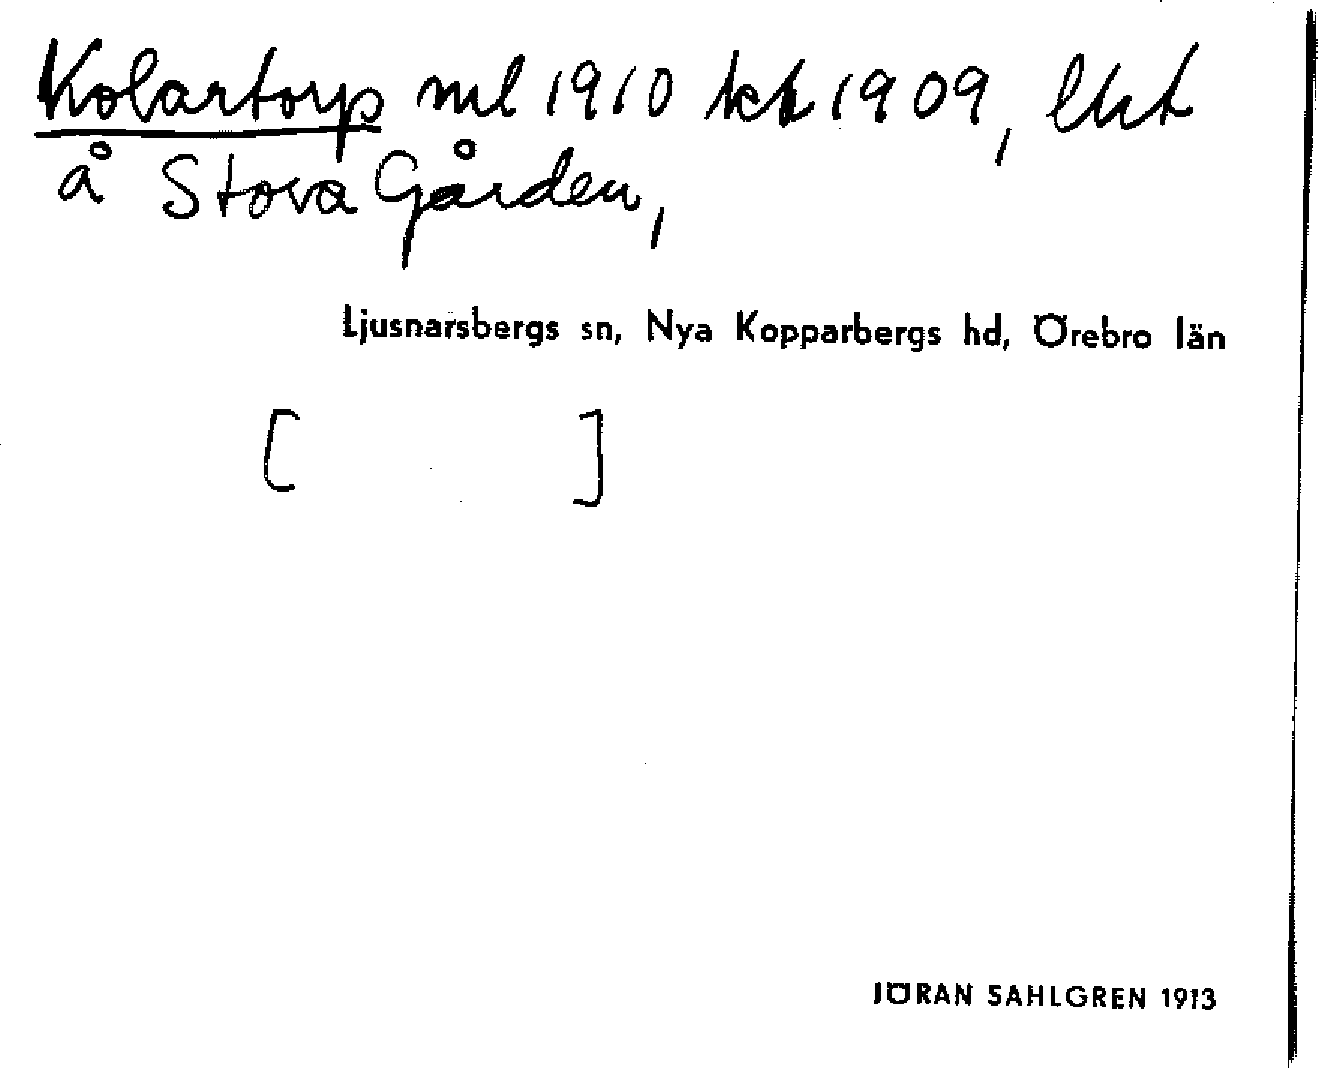 Kolartorp ml 1910 kt 1909, lht
å Stora Gården,
Ljusnarsbergs sn, Nya Kopparbergs hd, Örebro län
[ ]
JÖRAN SAHLGREN 1913